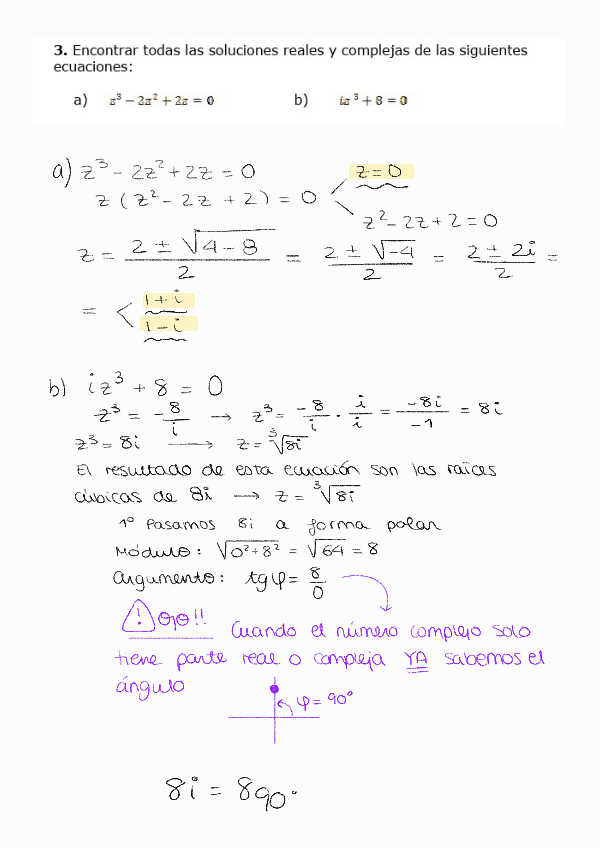 3. Encontrar todas las soluciones reales y complejas de las siguientes
ecuaciones:
a) z³ − 2z² + 2z = 0 b) iz³ + 8 = 0
a) z³ - 2z² + 2z = 0
z (z² - 2z + 2) = 0 < z = 0
z² - 2z + 2 = 0
z = (2 ± √(4 - 8))/2 = (2 ± √-4)/2 = (2 ± 2i)/2 =
= < 1 + i
1 - i
b) iz³ + 8 = 0
z³ = -8/i → z³ = -8/i · i/i = -8i/-1 = 8i
z³ = 8i → z = ³√8i
El resultado de esta ecuación son las raíces
cúbicas de 8i → z = ³√8i
1º Pasamos 8i a forma polar
Módulo: √(0² + 8²) = √64 = 8
Argumento: tg φ = 8/0
! Ojo!! Cuando el número complejo solo
tiene parte real o compleja YA sabemos el
ángulo
φ = 90°
8i = 8₉₀°